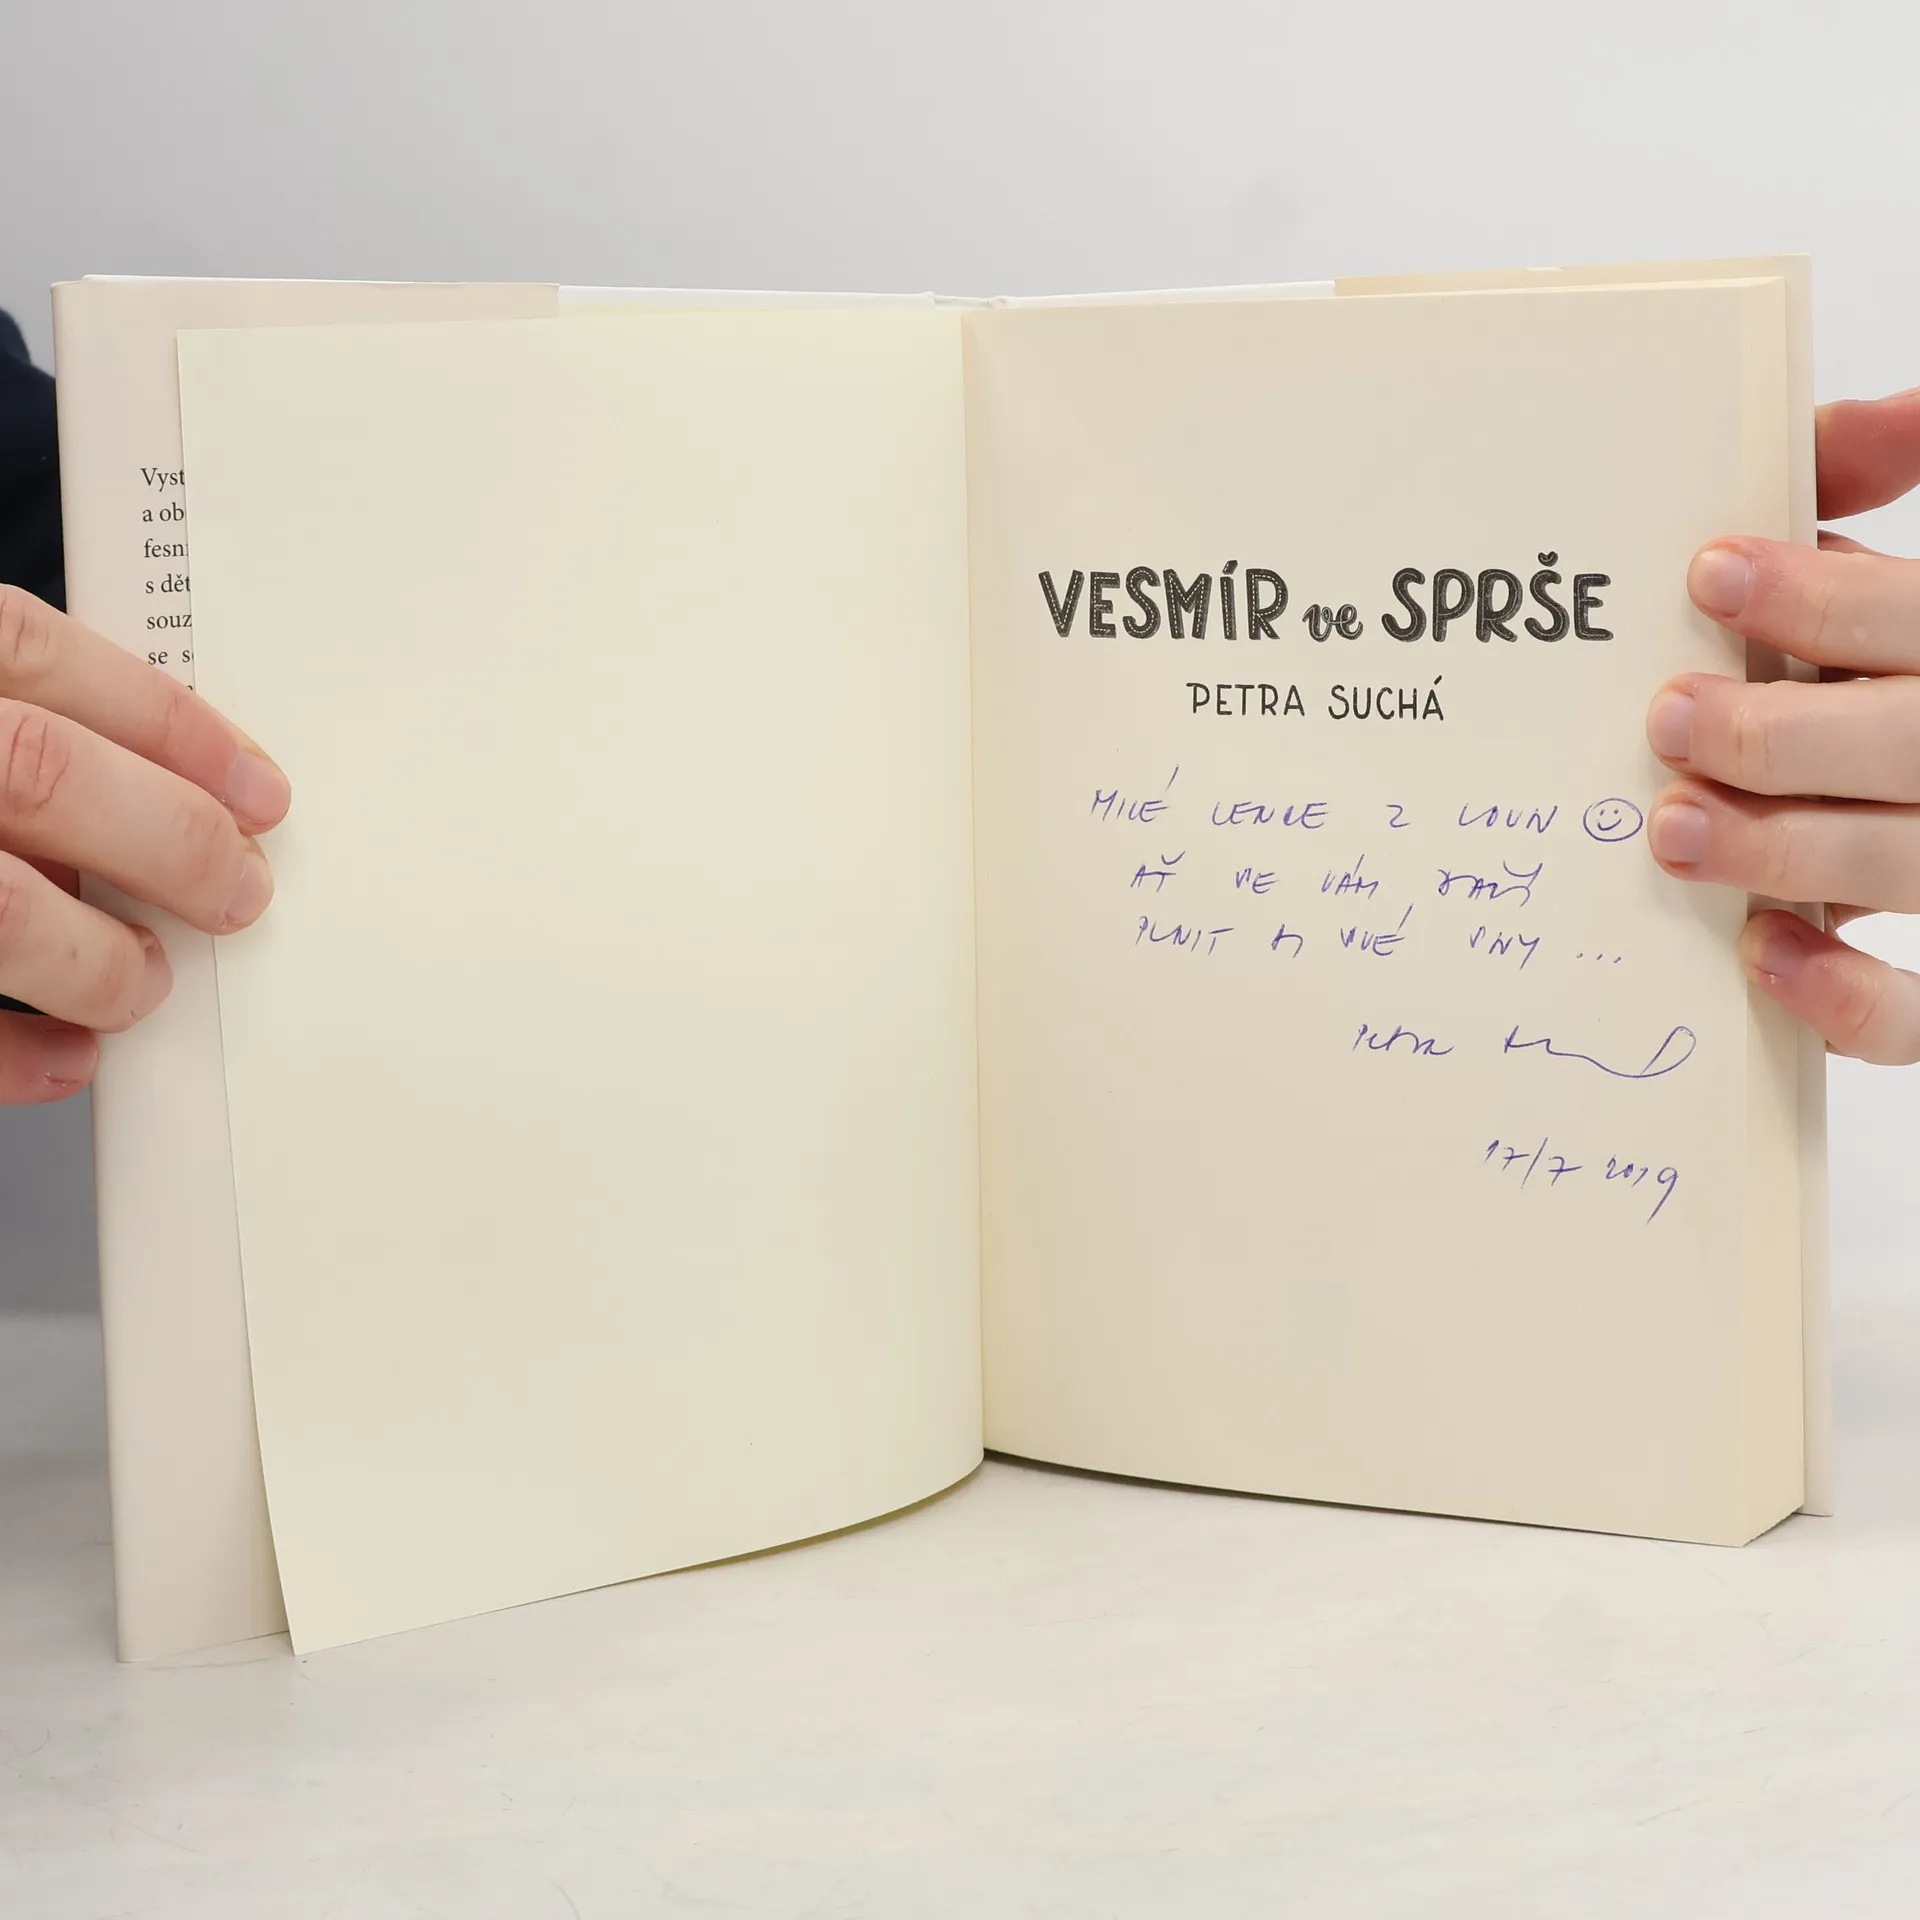 Vyst
a ob
fesn
s dět
souz
se s
VESMÍR ve SPRŠE
PETRA SUCHÁ
MILÉ LENCE Z LOUN
AŤ SE VÁM DAŘÍ
PLNIT SI SVÉ SNY ...
PETRA
17/7 2019